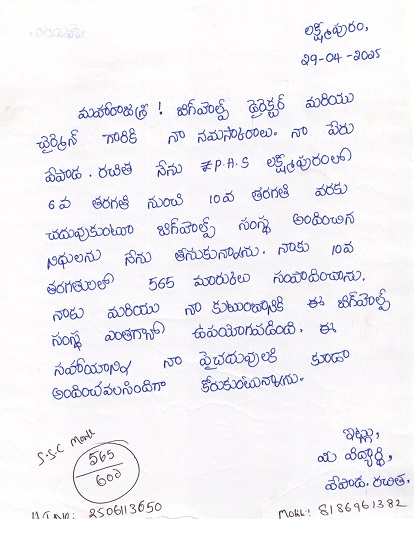 లక్ష్మీపురం,
29-04-2025
మహారాజశ్రీ ! బిగ్‌హెల్ప్ డైరెక్టర్ మరియు
ఛైర్మెన్ గారికి నా నమస్కారాలు. నా పేరు
వేపాడ. రచిత నేను Z.P.H.S లక్ష్మీపురంలో
6వ తరగతి నుంచి 10వ తరగతి వరకు
చదువుకుంటూ బిగ్‌హెల్ప్ సంస్థ అందించిన
నిధులను నేను తీసుకున్నాను. నాకు 10వ
తరగతులలో 565 మారుకులు సంపాదించాను.
నాకు మరియు నా కుటుంబానికి ఈ బిగ్‌హెల్ప్
సంస్థ ఎంతగానో ఉపయోగపడింది. ఈ
సహాయాన్ని నా పైచదువులకి కూడా
అందించవలసిందిగా కోరుకుంటున్నాను.
ఇట్లు,
మీ విద్యార్థి,
వేపాడ. రచిత.
S.S.C Mark
565
600
H.T.NO: 2506113650
Mobl: 8186961382